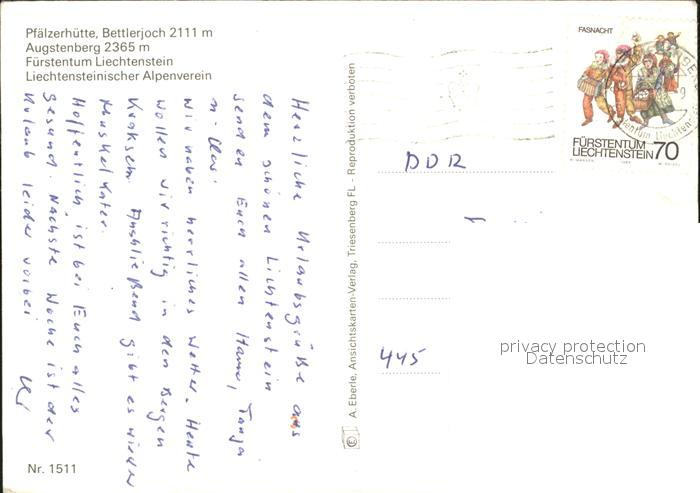 Pfälzerhütte, Bettlerjoch 2111 m
Augstenberg 2365 m
Fürstentum Liechtenstein
Liechtensteinischer Alpenverein
Herzliche Urlaubsgrüße aus
dem schönen Lichtenstein
senden Euch allen Hanne, Tanja
n. Klaus.
Wir haben herrliches Wetter. Heute
wollen wir richtig in den Bergen
Kraxseln. Anschließend gibt es wieder
Muskelkater.
Hoffentlich ist bei Euch alles
gesund. Nächste Woche ist der
Urlaub leider vorbei
Nr. 1511
A. Eberle, Ansichtskarten-Verlag, Triesenberg FL - Reproduktion verboten
FASNACHT
FÜRSTENTUM
LIECHTENSTEIN 70
DDR
445
privacy protection
Datenschutz